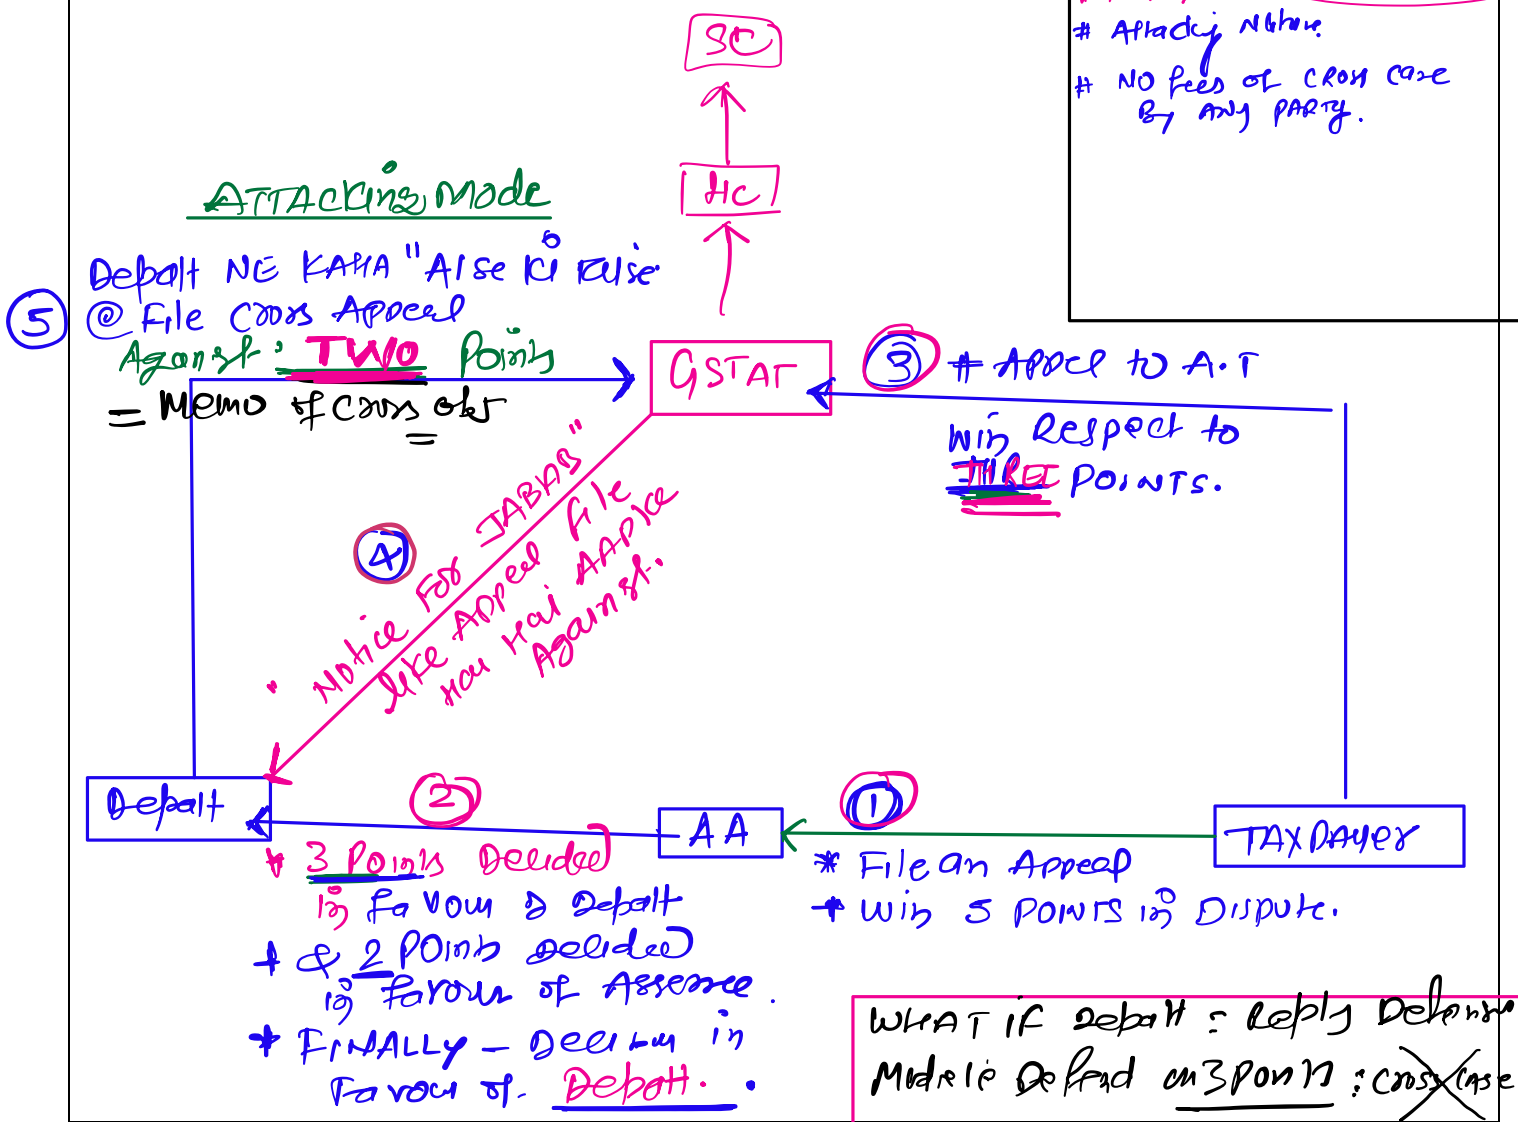 SC
# Attacking Nature.
# NO fees of CROSS Case
By ANY PARTY.
HC
ATTACKING MODE
Depatt NE KAHA "AISE KI KAISE
5
@ File Cross Appeal
Against: TWO Points
= Memo of Cross obj
GSTAT
3
# Appel to A.T
Win Respect to
THREE POINTS.
4
" NOTICE FOR JABAB"
like Appeal File
Hau Hai AAPKe
Against.
Depatt
2
AA
1
TAXPAYER
* 3 Points Decided
in favour of Depatt
* & 2 Points Decided
in favour of Assessee.
* FINALLY - Decision in
Favour of Depatt.
* File an Appeal
* Win 5 POINTS in DISPUTE.
WHAT IF Depatt : Reply Defensive
Mode ie Defend on 3 Points : Cross Case